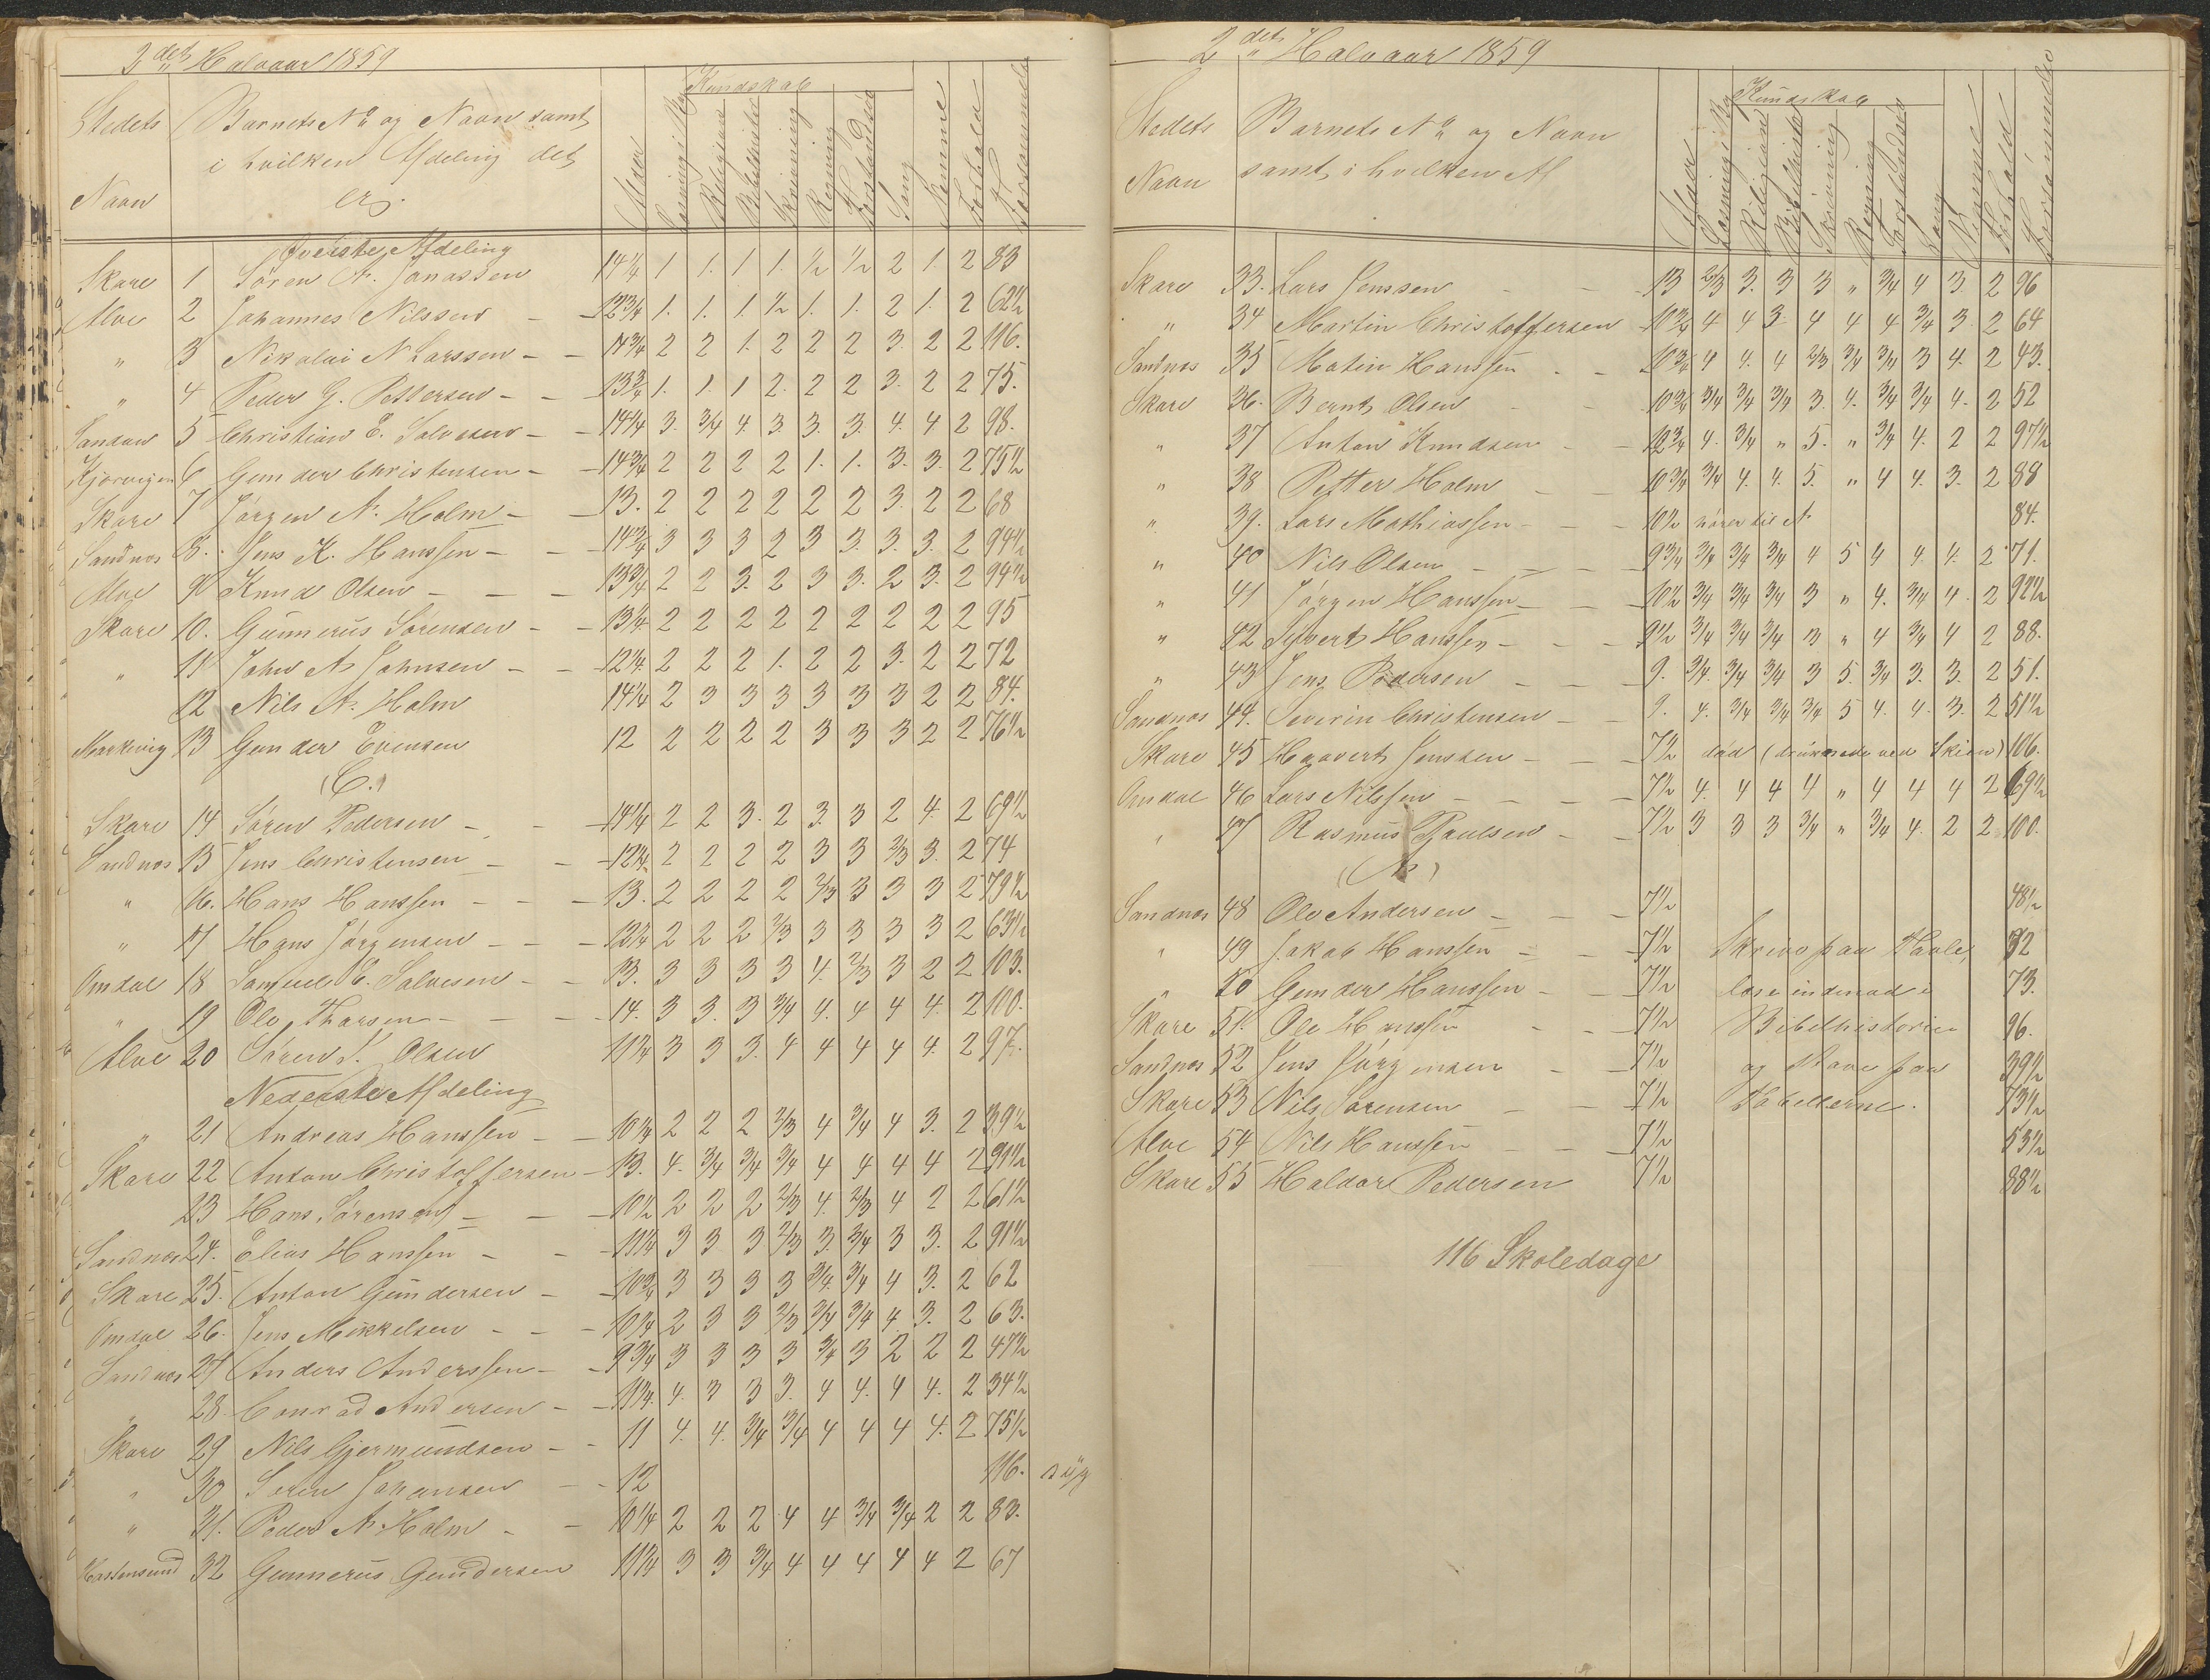 2det Halvaar 1859
Stedets Navn
Barnets No og Navn samt i hvilken Afdeling det er.
Alder
Kundskab
Læsning i Bog
Religion
Bibelhistorie
Skrivning
Regning
Forstandslæ
Sang
Nemme
Forhold
Forsømmelse
Øverste Afdeling
Skare 1 Søren A. Jonassen 14¼ 1 1. 1 1. ½ ½ 2 1 2 83
Alve 2 Johannes Nilssen 12¾ 1. 1. 1. ½ 1. 1. 2 1. 2 62½
" 3 Nikolai N Larssen 14¾ 2 2 1. 2 2 2 3. 2 2 116.
" 4 Peder G. Pettersen 13¾ 1. 1. 1 2. 2 2 3. 2 2 75.
Sandom 5 Christian E. Salvesen 14¼ 3. ¾ 4. 3. 3. 3. 4. 4 2 98.
Kjørvigen 6 Gunder Christensen 14¾ 2 2 2 2 1. 1. 3. 3. 2 75½
Skare 7 Jørgen A. Holm 13. 2 2 2 2 2 2 3. 2 2 68
Sandnæs 8. Jens K. Hanssen 14¾ 3 3 3 2 3 3. 3. 3. 2 94½
Alve 9 Knud Olsen 13¾ 2 2 3. 2 3 3. 2 3. 2 94½
Skare 10. Gunnerus Sørensen 13¼ 2 2 2 2 2 2 2 2 2 95
" 11 John A Johnsen 12¼ 2 2 2 1. 2 2 3. 2 2 72
12 Nils A. Holm 14¼ 2 3 3 3 3 3 3 2 2 84.
Markevig 13 Gunder Evensen 12 2 2 2 2 3 3 3 2 2 76½
(C.)
Skare 14 Søren Pedersen 14¼ 2 2 3. 2 3. 3 2 4. 2 69½
Sandnæs 15 Jens Christensen 12¼ 2 2 2 2 3 3 2/3 3. 2 74
" 16. Hans Hanssen 13. 2 2 2 2 2/3 3 3 3 2 79½
" 17 Hans Jørgensen 12½ 2 2 2 2/3 3 3 3 3 2 63½
Omdal 18 Samuel E. Salvesen 13. 3 3 3 3 4. 2/3 3 2 2 103.
" 19 Ole Tharsen 14. 3 3. 3 ¾ 4. 4 4 4. 2 100.
Alve 20 Søren S. Olsen 11¾ 3 3 3. 4 4 4 4 4. 2 97.
Nederste Afdeling
" 21 Andreas Hanssen 10¾ 2 2 2 2/3 4 ¾ 4 3. 2 39½
Skare 22 Anton Christoffersen 13. 4. ¾ ¾ ¾ 4 4 4 4 2 91½
23 Hans Sørensen 10½ 2 2 2 2/3 4. 2/3 4 2 2 61½
Sandnæs 24. Elias Hanssen 11¼ 3 3 3 2/3 3. ¾ 3 3. 2 91½
Skare 25. Anton Gundersen 10¾ 3 3 3 3 ¾ ¾ 4 3. 2 62
Omdal 26. Jens Mikkelsen 10¼ 2 3 3 2/3 ¾ ¾ 4 3. 2 63.
Sandnæs 27 Anders Anderssen 9¾ 3 3 3 3 ¾ 3 2 2 2 47½
" 28. Conrad Andersen 11¾ 4. 3 3 3. 4 4. 4 4. 2 34½
Skare 29 Nils Gjermundsen 11 4. 4. ¾ ¾ 4 4 4 4. 2 75½
" 30 Søren Johansen 12 116. syg
" 31. Peder A Holm 10¼ 2 2 2 4 4 ¾ ¾ 2 2 83.
Hastensund 32 Gunnerus Gundersen 11¾ 3 3 ¾ 4 4 4 4 4 2 67
2det Halvaar 1859
Stedets Navn
Barnets No og Navn samt i hvilken Af
Alder
Kundskab
Læsning i Bog
Religion
Bibelhistorie
Skrivning
Regning
Forstandslæ
Sang
Nemme
Forhold
Forsømmelse
Skare 33. Lars Jenssen 13 2/3 3. 3 3 " ¾ 4 3. 2 96
" 34 Martin Christoffersen 10¾ 4 4 3. 4 4 4 ¾ 3 2 64
Sandnæs 35 Matin Hanssen 10¾ 4 4. 4 2/3 ¾ ¾ 3 4. 2 43.
Skare 36. Bernt Olsen 10¾ ¾ ¾ ¾ 3. 4. ¾ ¾ 4. 2 52
" 37 Anton Knudsen 12¾ 4. ¾ " 5. " ¾ 4. 2 2 97½
" 38 Petter Holm 10¾ ¾ 4. 4. 5. " 4 4. 3. 2 88
" 39. Lars Mathiassen 10½ hører til A 84.
" 40 Nils Olsen 9¾ ¾ ¾ ¾ 4 5 4 4. 4. 2 71.
" 41 Jørgen Hanssen 10½ ¾ ¾ ¾ 3 " 4. ¾ 4. 2 92½
" 42 Syvert Hanssen 9½ ¾ ¾ ¾ 3 " 4 ¾ 4 2 88.
" 43 Jens Pedersen 9. ¾ ¾ ¾ 3 5. ¾ 3. 3. 2 51.
Sandnæs 44. Severin Christensen 9. 4. ¾ ¾ ¾ 5 4. 4. 3. 2 51½
Skare 45 Haavert Jenssen 7½ død (druknede ved Skien) 106.
Omdal 46 Lars Nilssen 7½ 4. 4 4 4 " 4 4 4 2 69½
" 47 Rasmus Paulsen 7½ 3 3 3 ¾ " ¾ 4. 2 2 100.
(A)
Sandnæs 48 Ole Andersen 7½ 48½
" 49 Jakob Hanssen 7½ Skrive paa Tavle, 32
" 50 Gunder Hanssen 7½ læse indenad i 73.
Skare 51. Ole Hanssen 7½ Bibelhistorien 96.
Sandnæs 52 Jens Jørgensen 7½ og stave paa 39½
Skare 53 Nils Sørensen 7½ Tabellerne. 73½
Alve 54 Nils Hanssen 7½ 53½
Skare 55 Haldor Pedersen 7½ 88½
116 Skoledage